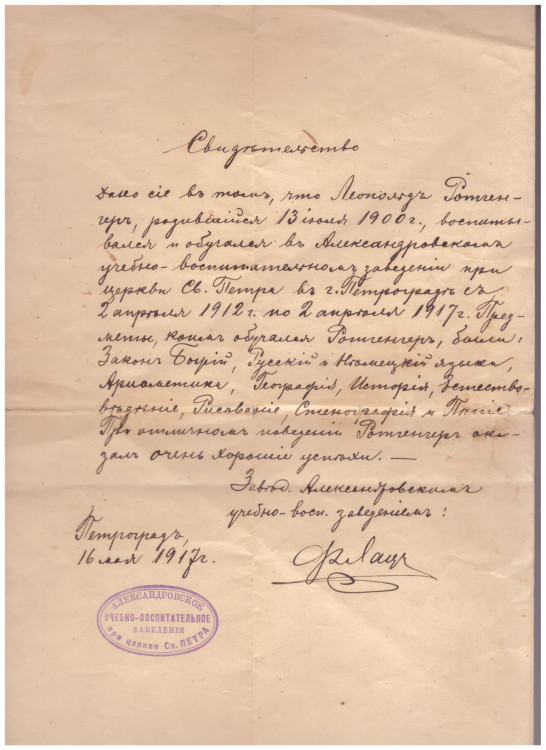 Свидѣтельство
Дано сіе въ томъ, что Леопольдъ Ротген-
геръ, родившійся 13 іюля 1900 г., воспиты-
вался и обучался въ Александровскомъ
учебно-воспитательномъ заведеніи при
церкви Св. Петра въ г. Петроградѣ съ
2 апрѣля 1912 г. по 2 апрѣля 1917 г. Пред-
меты, коимъ обучался Ротгенгеръ, были:
Законъ Божій, Русскій и Нѣмецкій языки,
Ариѳметика, Географія, Исторія, Естество-
вѣдѣніе, Рисованіе, Стенографія и Пѣніе.
При отличномъ поведеніи Ротгенгеръ ока-
залъ очень хорошіе успѣхи. —
Завѣд. Александровскимъ
учебно-восп. заведеніемъ:
Петроградъ,
16 мая 1917 г.
АЛЕКСАНДРОВСКОЕ
УЧЕБНО-ВОСПИТАТЕЛЬНОЕ
ЗАВЕДЕНІЕ
при церкви Св. ПЕТРА